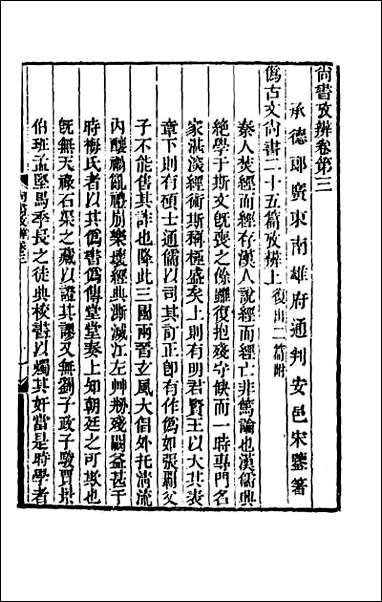 尚書攷辨卷第三
承德郎廣東南雄府通判安邑宋鑒著
僞古文尚書二十五篇攷辨上復出二篇附
秦人焚經而經存漢人說經而經亡非篤論也漢儒興
絶學于斯文旣喪之餘雖復抱殘守缺而一時專門名
家湛深經術斯稱極盛矣上則有明君賢王以大其表
章下則有碩士通儒以司其訂正卽有作僞如張霸父
子不能售其詐也降此三國兩晉玄風大倡外托淸流
内釀禍亂禮別樂壞經典漸滅江左艸剏殘闕益甚于
時梅氏者以其僞書僞傳堂堂奏上知朝廷之可欺也
旣無天祿石渠之藏以證其謬又無劉子政子駿賈景
伯班孟堅馬季長之徒典校書以燭其奸當是時學者
尚書攷辨卷三 一